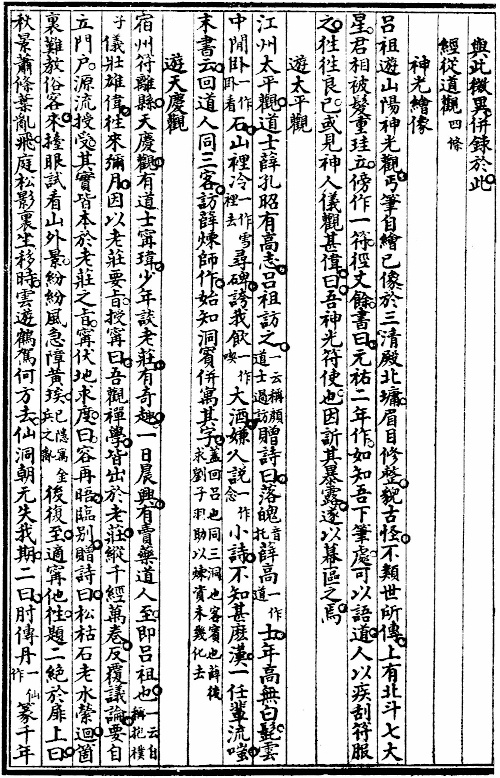 與此微異併錄於此
經從道觀四條
神光繪像
呂祖遊山陽神光觀丐筆自繪已像於三清殿北墉眉目修整貌古怪不類世所傳上有北斗七大
星君相被髮重珪立傍作一符徑丈餘書曰元祐二年作如知吾下筆處可以語道人以疾刮符服
之往往良已或見神人儀觀甚偉曰吾神光符使也因訴其暴露遂以幕區之焉
遊太平觀
江州太平觀道士薛孔昭有高志呂祖訪之一云稱顏道士過訪贈詩曰落魄音托薛高一作道士年高無白髭雲
中閒卧一作卧看石山裡冷一作裡去雪尋碑誇我飲一作喫大酒嫌人說一作念小詩不知甚麼漢一任輩流嗤
末書云回道人同三客訪薛煉師作始知洞賓併寓其字蓋回呂也同三洞也客賓也薛後求劉子羽助以煉資未幾化去
遊天慶觀
宿州符離縣天慶觀有道士甯瑋少年談老莊有奇趣一日晨興有賣藥道人至即呂祖也一云自稱抱樸子
儀壯雄偉往來彌月因以老莊要旨授甯曰吾觀禪學皆出於老莊縱千經萬卷反覆議論要自
立門戶源流授受其實皆本於老莊之旨甯伏地求度曰容再晤臨別贈詩曰松枯石老水縈迴箇
裏難教俗客來擡眼試看山外景紛紛風急障黃埃已隱寓金兵之難後復至適甯他往題二絕於扉上曰
秋景蕭條葉亂飛庭松影裏坐移時雲遊鶴駕何方去仙洞朝元失我期二曰肘傳丹一作仙篆千年